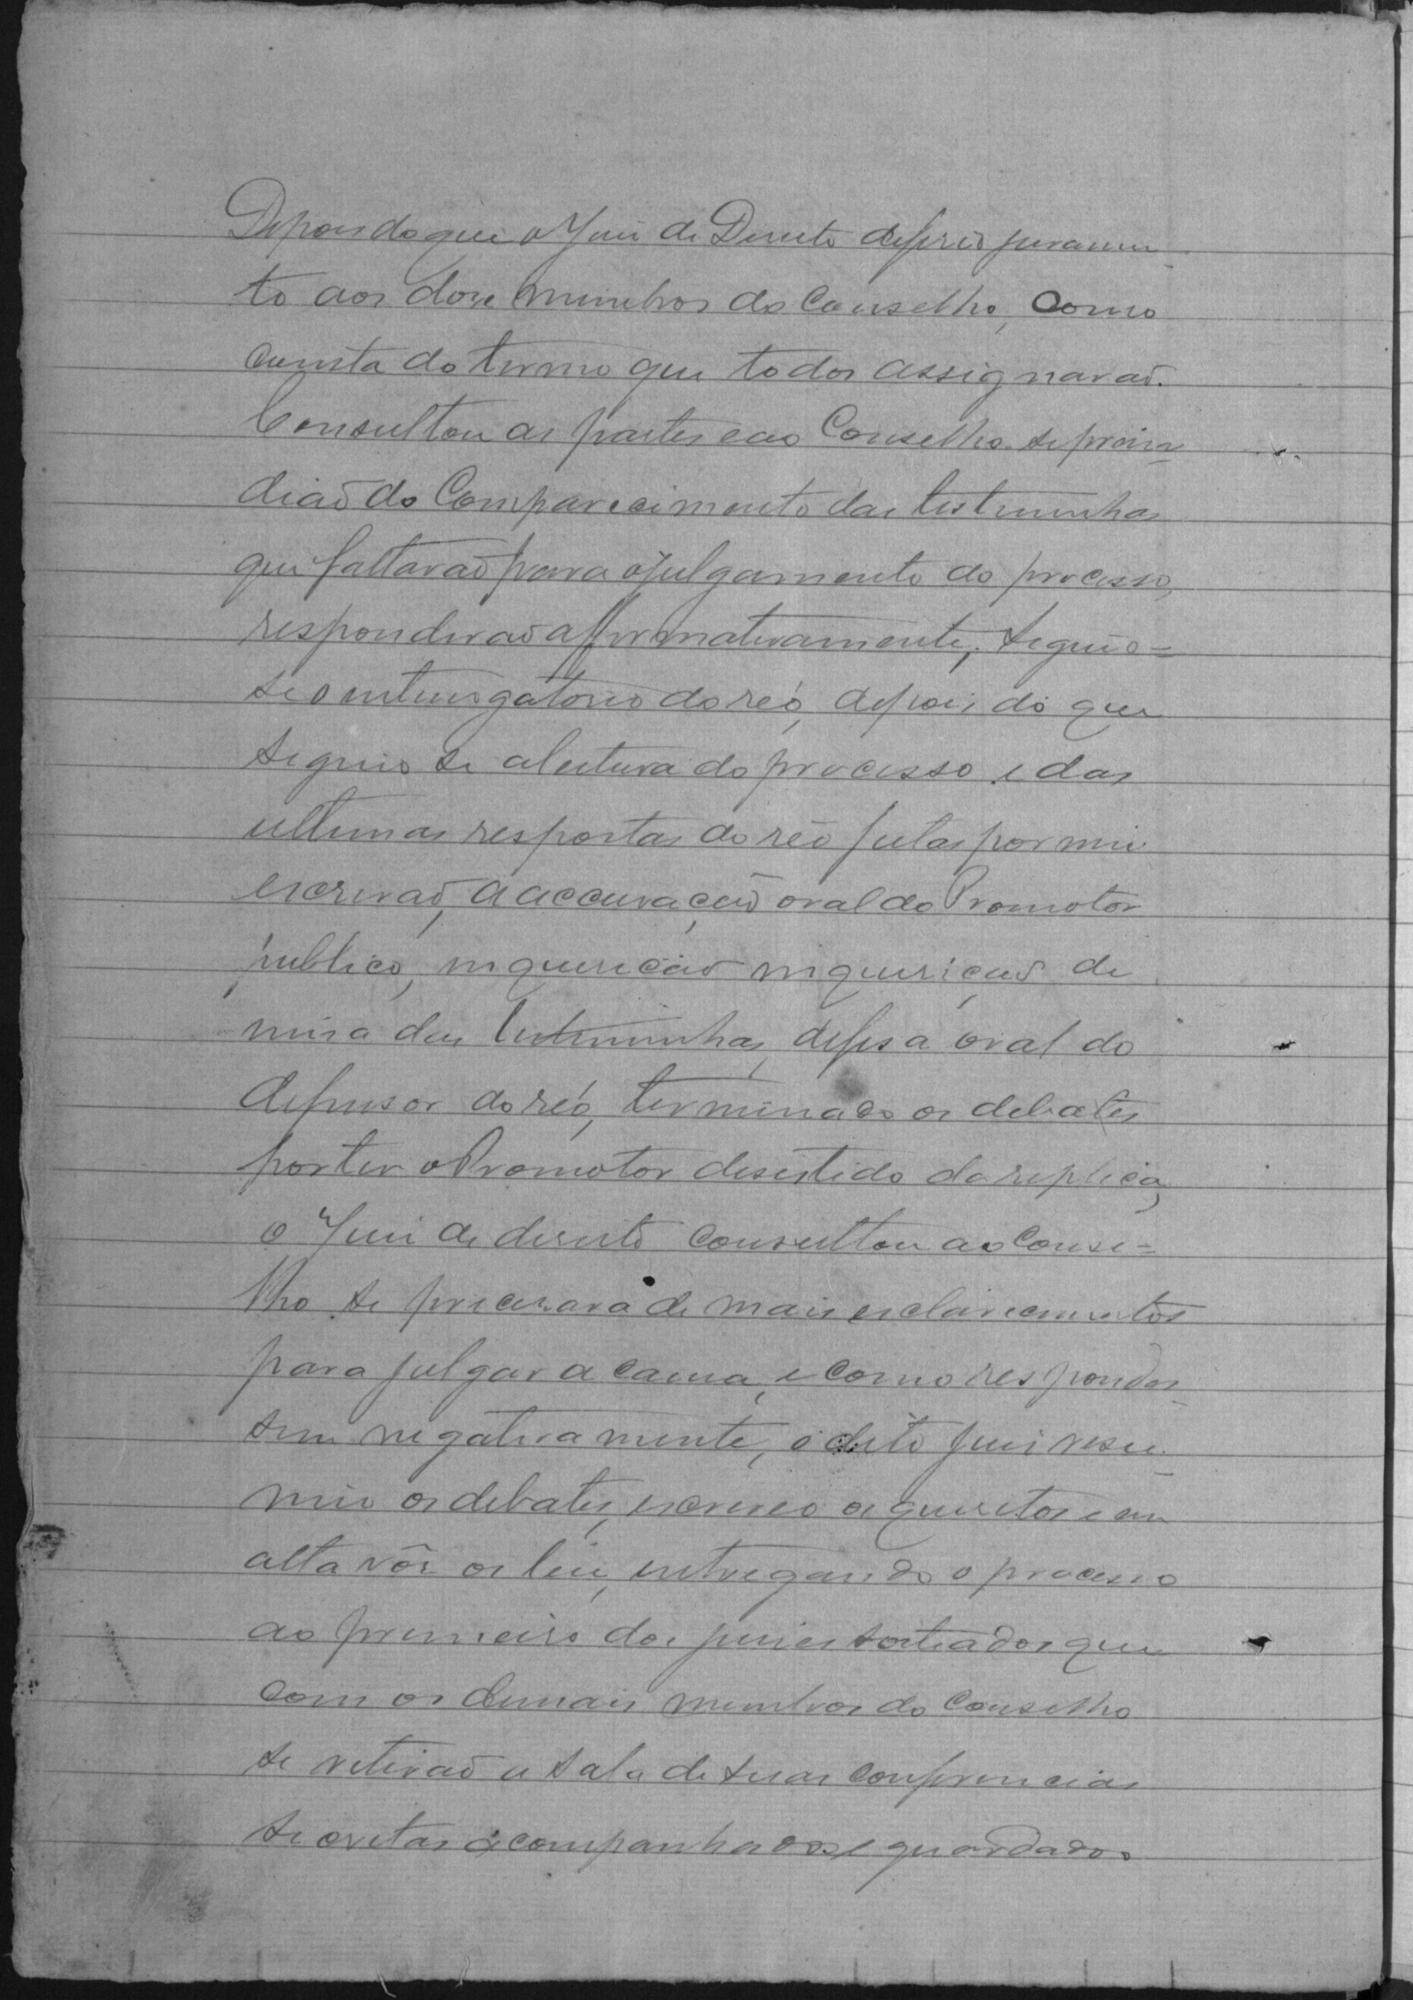 Depois do que o Juiz de Direito deferio juramen-
to aos doze membros do Conselho, como
consta do termo que todos assignarão.
Consultou as partes e ao Conselho se prescin-
dião do Comparecimento das testemunhas
que faltarão para o julgamento do processo,
responderão affirmativamente, seguio=
se o interrogatorio do réo, depois do que
seguio se a leitura do processo e das
ultimas respostas do réo feitas por mim
escrivão, a accusação oral do Promotor
publico, inquerição inquerição de
uma das testemunhas, defesa oral do
defensor do réo, terminado os debates
por ter o Promotor desistido da replica,
o Juiz de direito consultou ao Conse=
lho se precisava de mais esclarecimentos
para julgar a causa, e como respondes-
sem negativamente, o dito Juiz resu-
mio os debates, escreveo os quesitos e em
alta vôz os leu, entregando o processo
ao primeiro dos juizes sorteados que
com os demais membros do Conselho
se retirão a sala de suas conferencias
secretas acompanhados e guardados